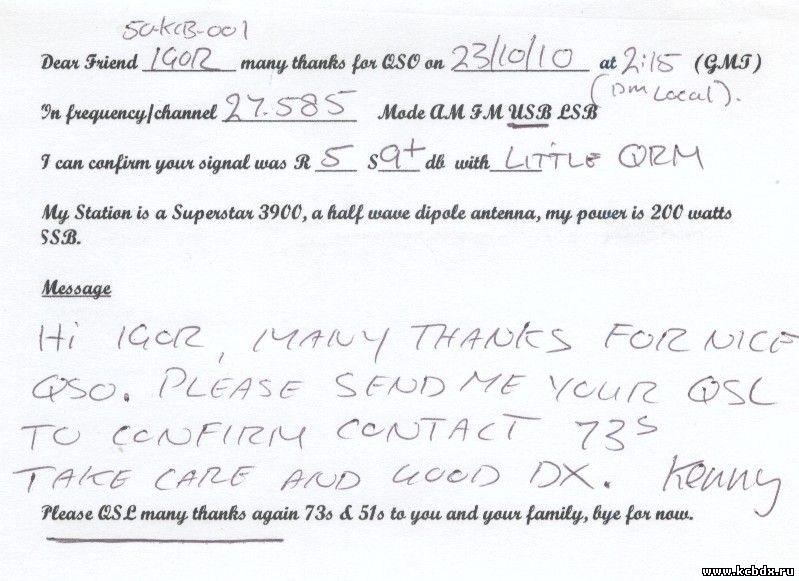 50-KCB-001
Dear Friend IGOR many thanks for QSO on 23/10/10 at 2:15 (GMT)
(pm Local).
In frequency/channel 27.585 Mode AM FM USB LSB
I can confirm your signal was R 5 S 9+ db with LITTLE QRM
My Station is a Superstar 3900, a half wave dipole antenna, my power is 200 watts
SSB.
Message
Hi IGOR, MANY THANKS FOR NICE
QSO. PLEASE SEND ME YOUR QSL
TO CONFIRM CONTACT 73S
TAKE CARE AND GOOD DX. Kenny
Please QSL many thanks again 73s & 51s to you and your family, bye for now.
www.kcbdx.ru